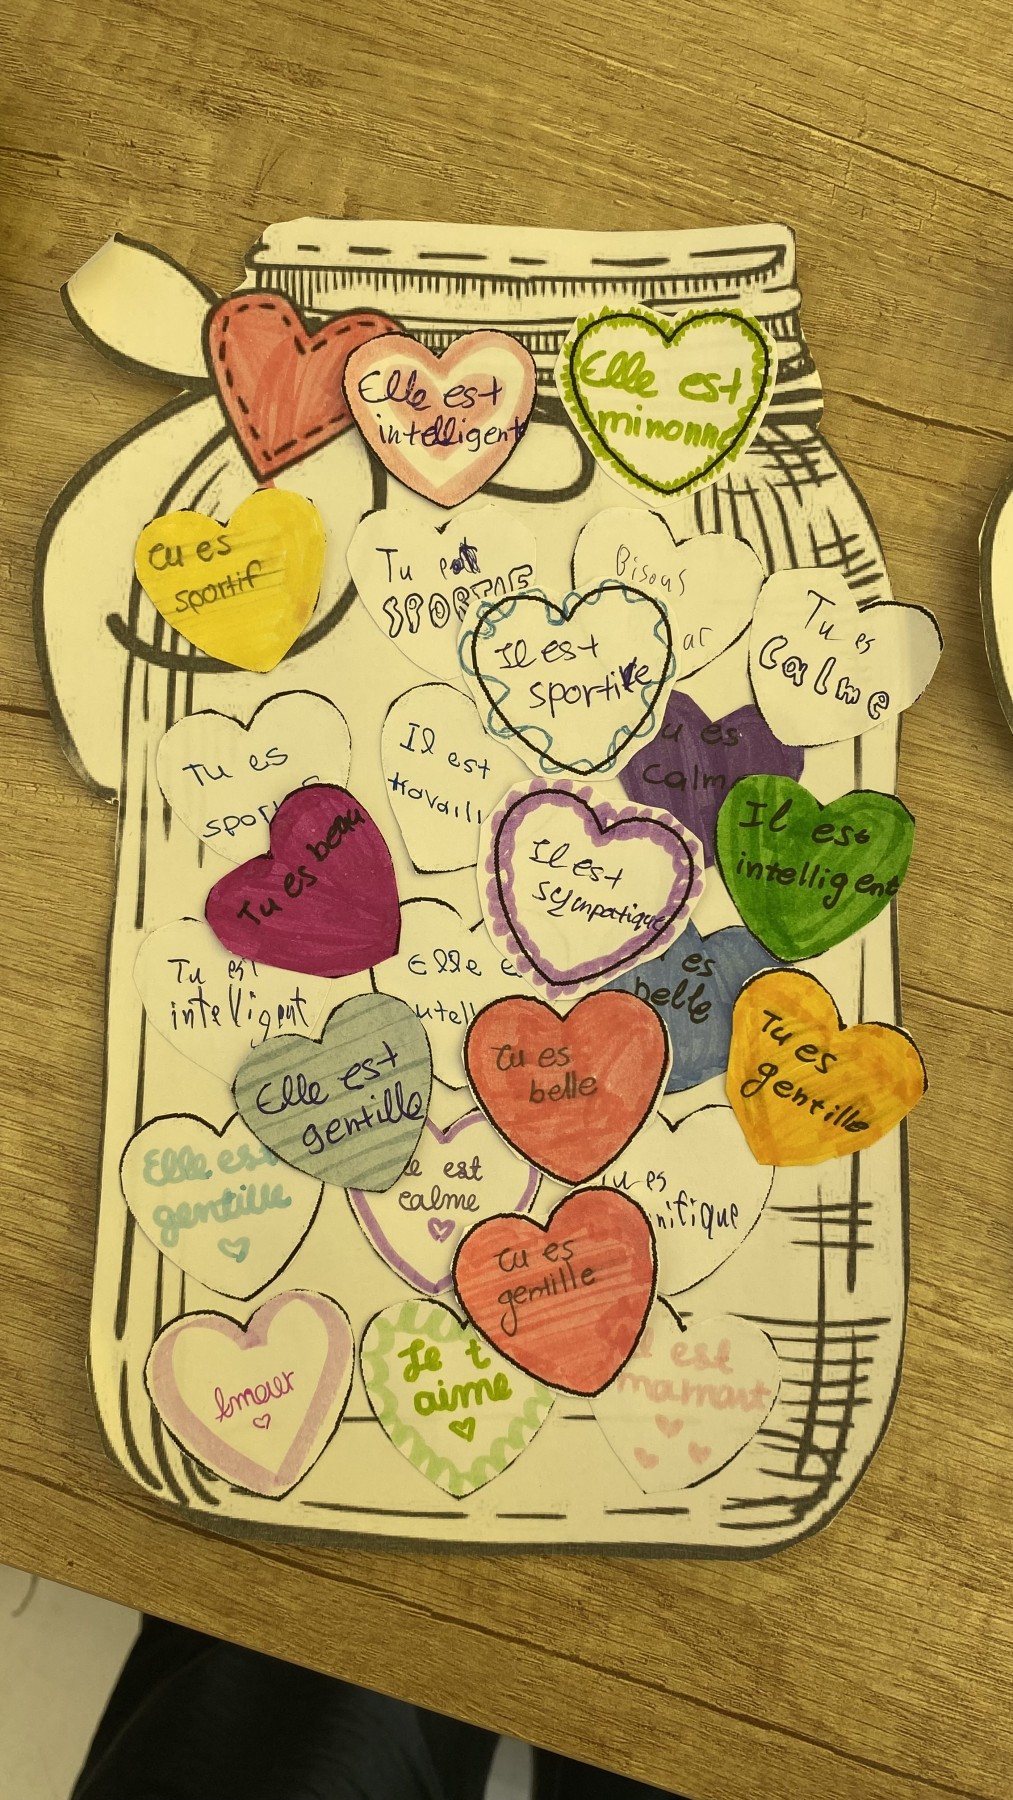 Elle est
intelligent
Elle est
minonne
Tu es
sportif
Tu est
SPORTIF
Bisous
ar
Il est
sportive
Tu es
Calme
Tu es
spor
Il est
travaill
u es
calm
Tu es beau
Il est
sympatique
Il est
intelligent
Tu est
intelligent
Elle e
utell
es
belle
Tu es
belle
Tu es
gentille
Elle est
gentille
Elle est
gentille
le est
calme
Tu es
nifique
Tu es
gentille
Amour
Je t
aime
est
mamant